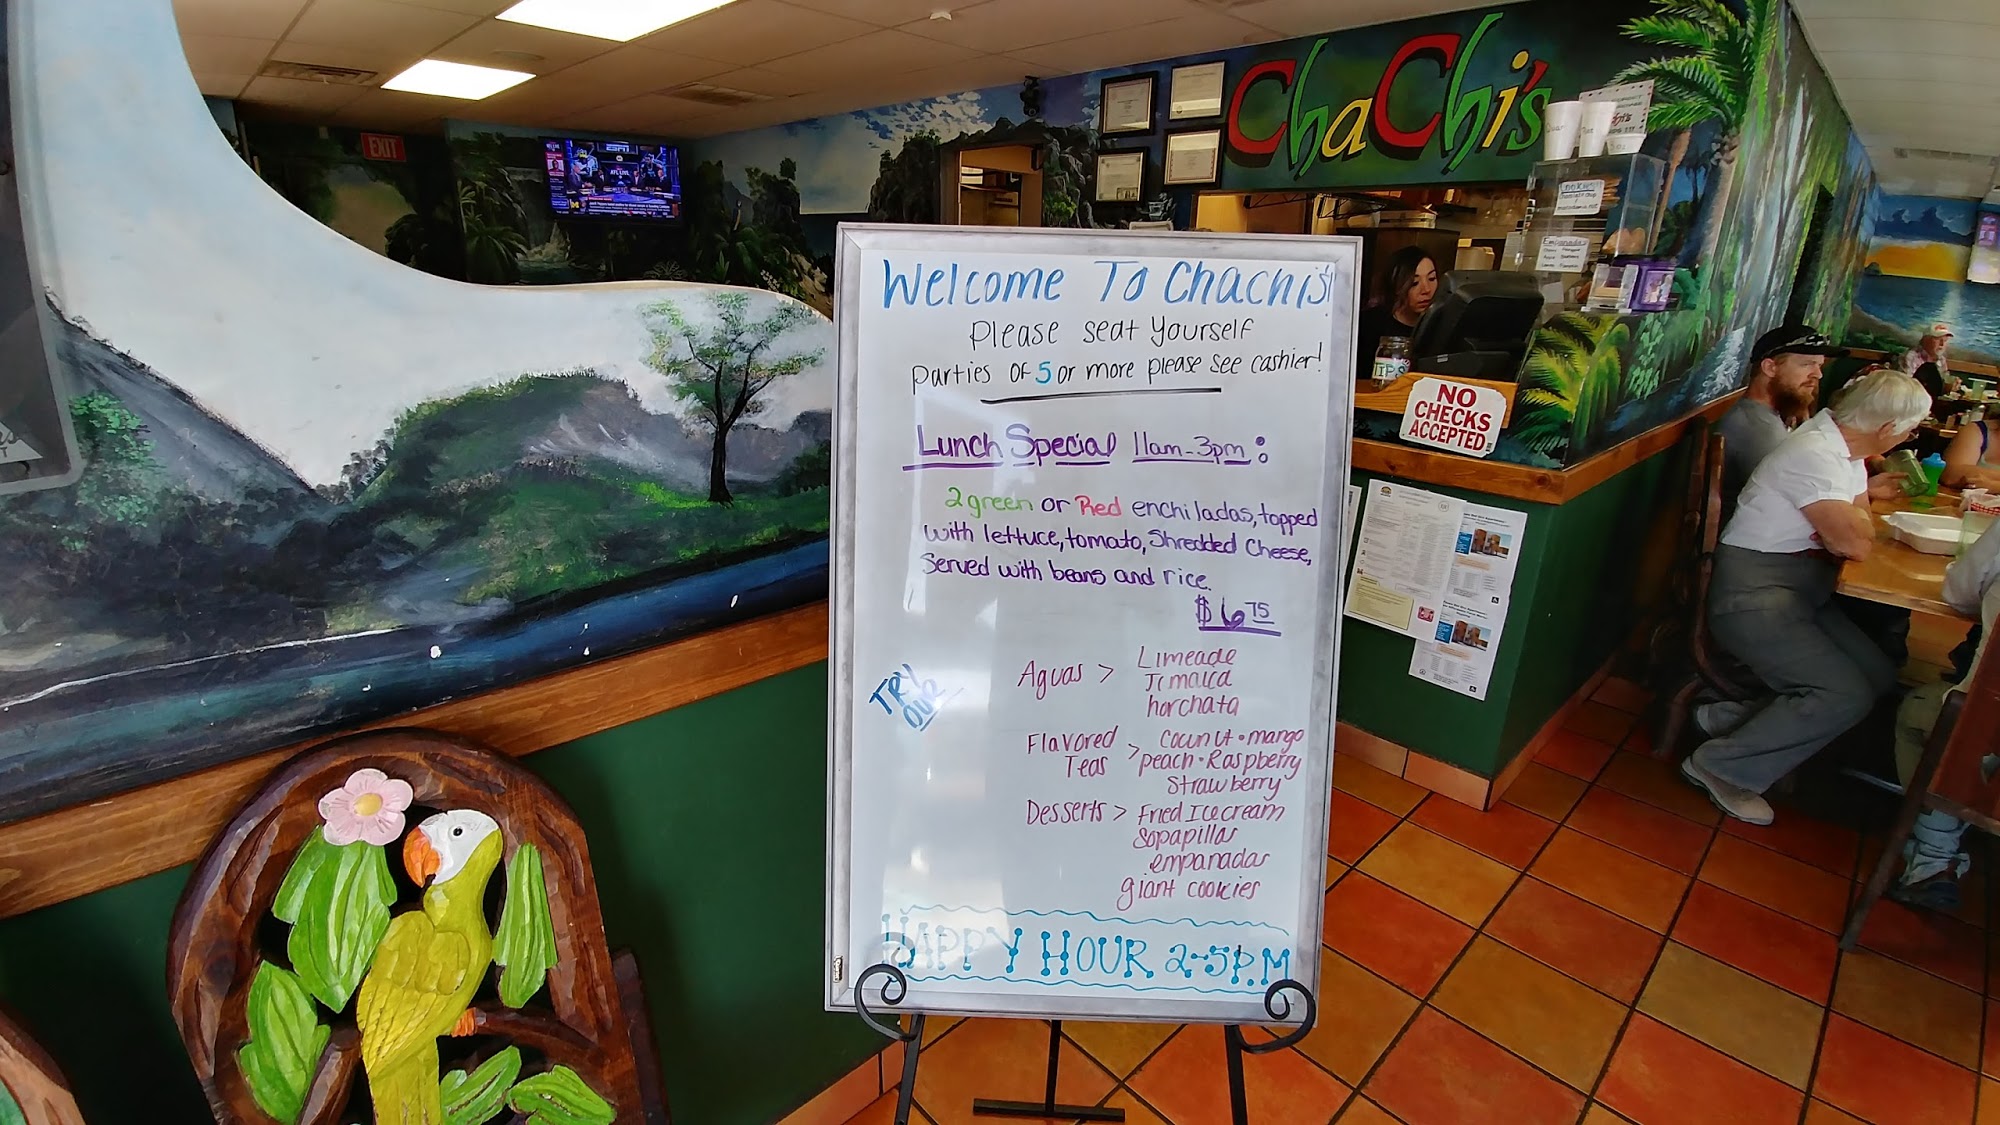 EXIT
ESPN
ChaChi's
COOKIES
Empanadas
TIPS
NO
CHECKS
ACCEPTED
Welcome To Chachis!
Please seat Yourself
Parties of 5 or more please see cashier!
Lunch Special 11am-3pm:
2 green or Red enchiladas, topped
with lettuce, tomato, Shredded Cheese,
Served with beans and rice.
$6 75
TRY
OUR
Aguas > Limeade
Jimaica
horchata
Flavored Teas > Coconut • mango
peach • Raspberry
Strawberry
Desserts > Fried Ice cream
Sopapillas
empanadas
giant cookies
HAPPY HOUR 2-5P.M